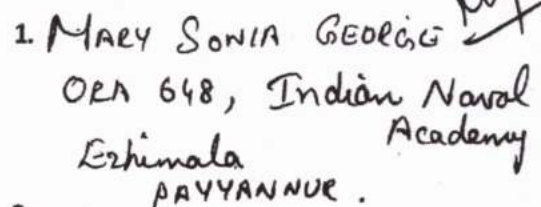 1. MARY SONIA GEORGE
ORA 648, Indian Naval
Academy
Ezhimala
PAYYANNUR.